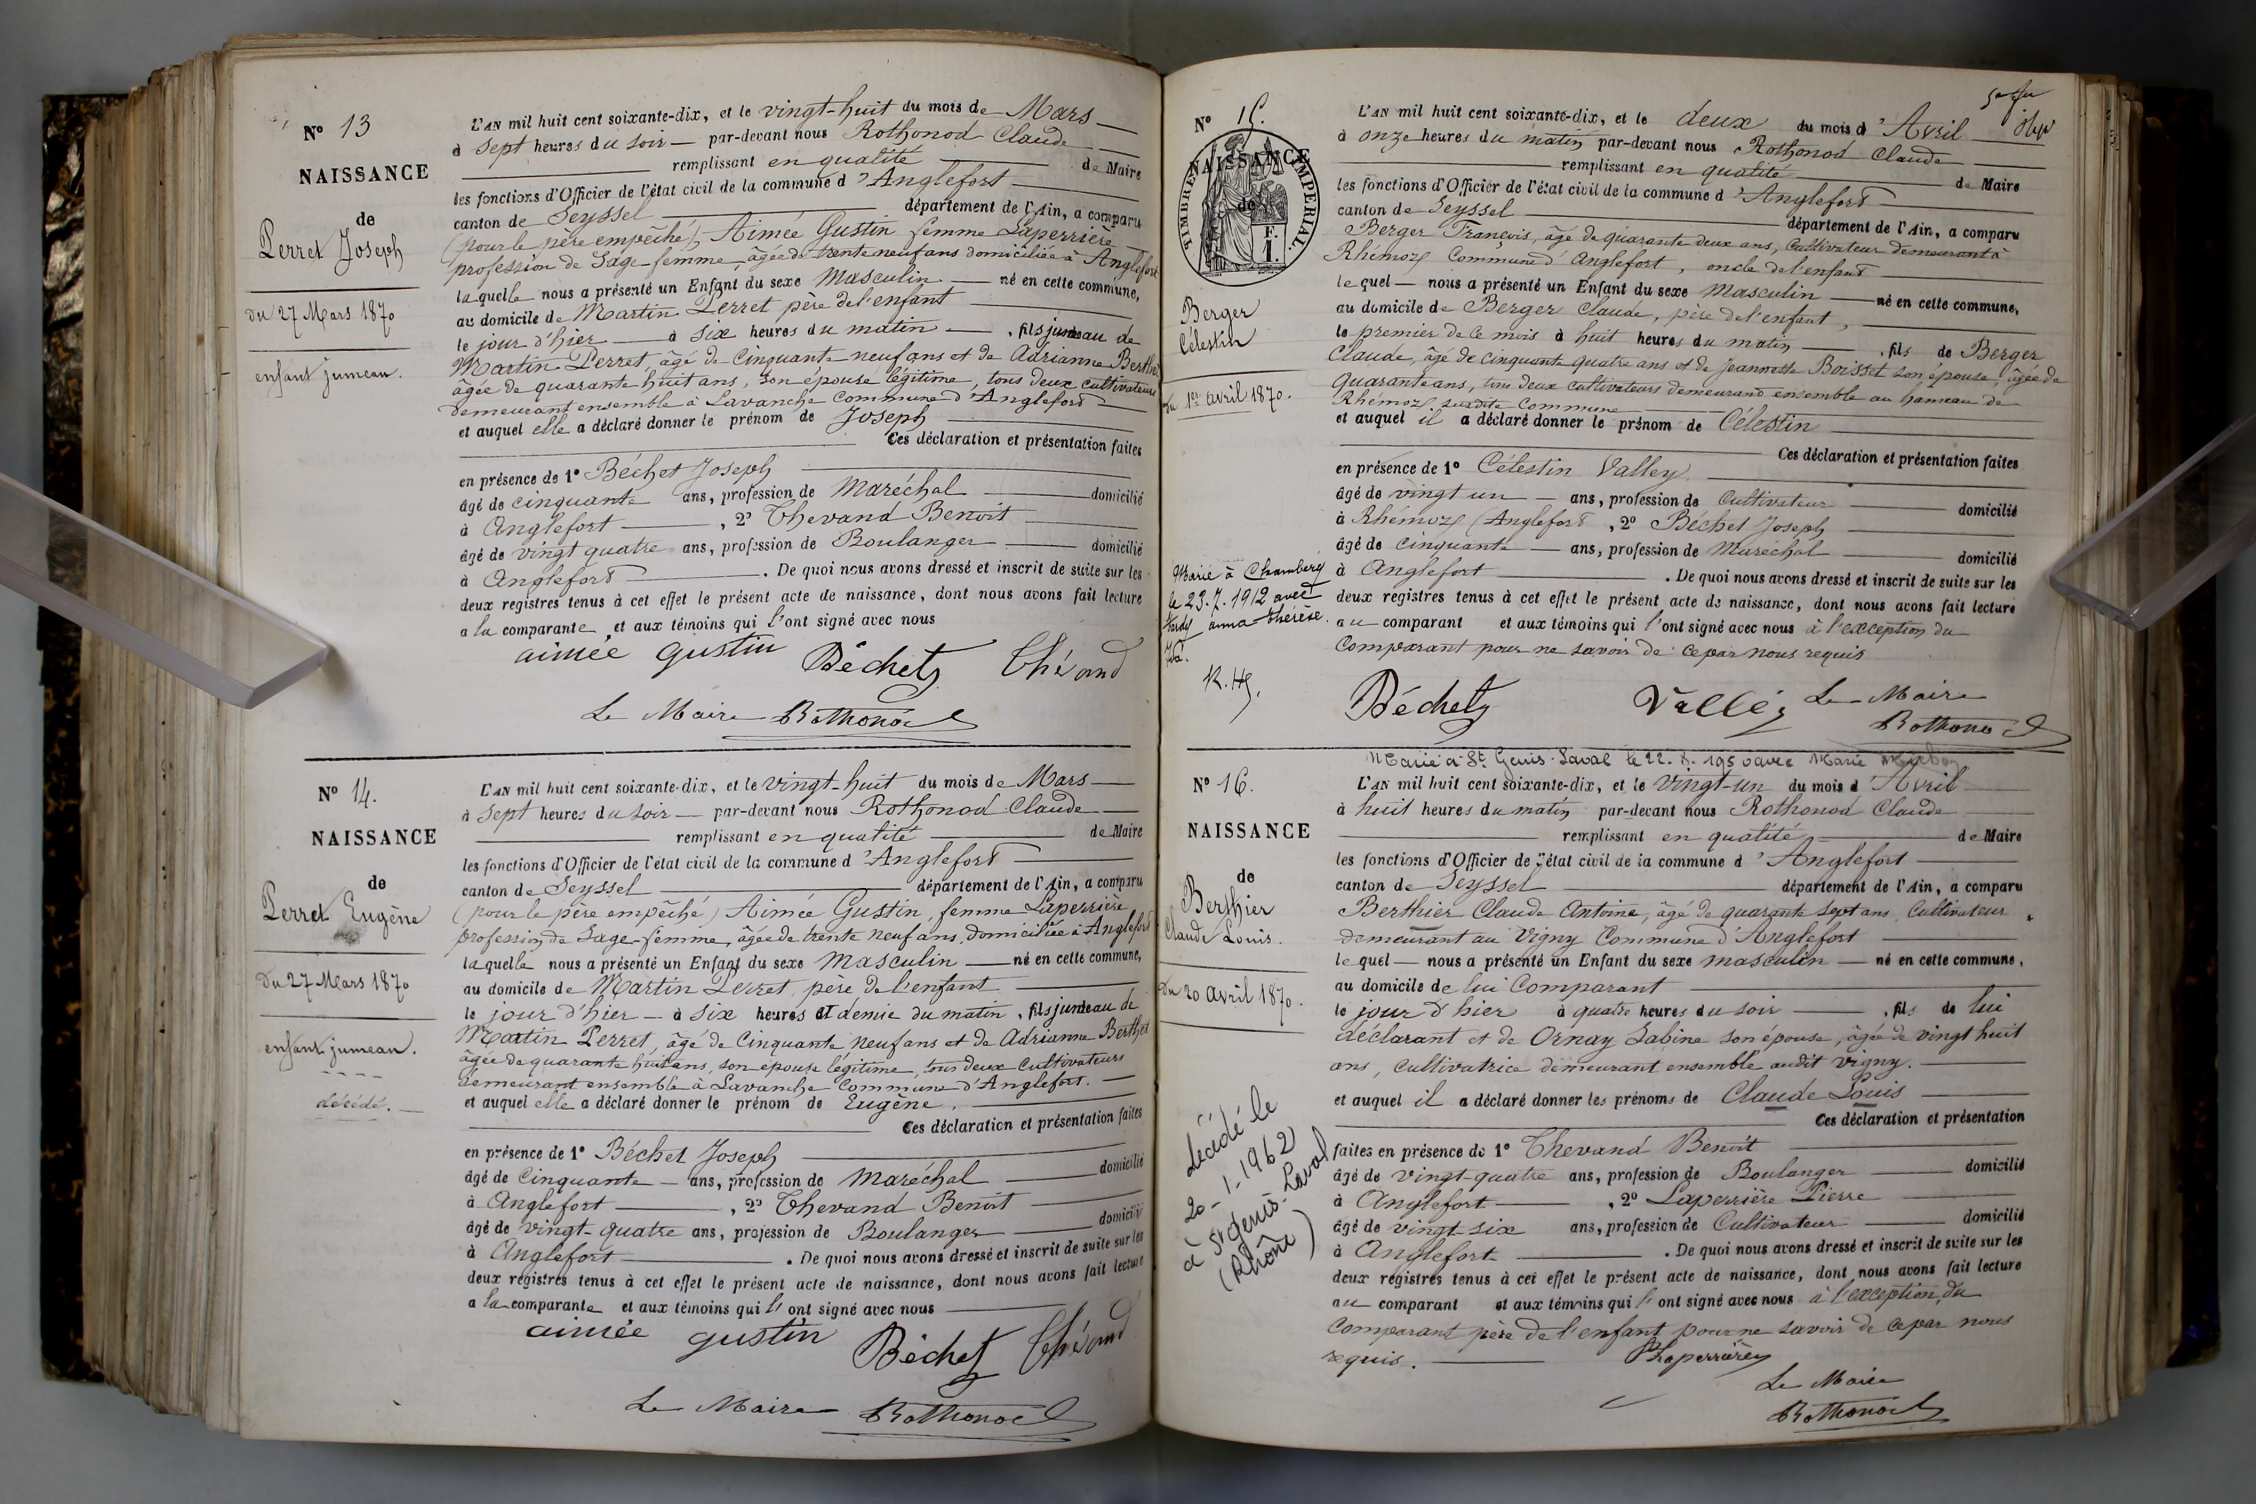 N° 13
NAISSANCE
de
Perret Joseph
du 27 Mars 1870
enfant jumeau.
L'AN mil huit cent soixante-dix, et le vingt-huit du mois de Mars
à sept heures du soir par-devant nous Rothonod Claude
remplissant en qualité de Maire
les fonctions d'Officier de l'état civil de la commune d'Anglefort
canton de Seyssel département de l'Ain, a comparu
(pour le père empêché) Aimée Gustin femme Laperrière
profession de Sage-femme, âgée de trente neuf ans domiciliée à Anglefort
laquelle nous a présenté un Enfant du sexe Masculin né en cette commune,
au domicile de Martin Perret père de l'enfant
le jour d'hier à six heures du matin, fils jumeau de
Martin Perret, âgé de Cinquante-neuf ans et de Adrianne Berthet
âgée de quarante huit ans, son épouse légitime, tous deux cultivateurs
demeurant ensemble à Lavanche Commune d'Anglefort
et auquel elle a déclaré donner le prénom de Joseph
Ces déclaration et présentation faites
en présence de 1° Béchet Joseph
âgé de cinquante ans, profession de Maréchal domicilié
à Anglefort, 2° Thevand Benoît
âgé de vingt quatre ans, profession de Boulanger domicilié
à Anglefort. De quoi nous avons dressé et inscrit de suite sur les
deux registres tenus à cet effet le présent acte de naissance, dont nous avons fait lecture
a la comparante, et aux témoins qui l'ont signé avec nous
aimée gustin Béchet Thévand
Le Maire Rothonod
N° 14.
NAISSANCE
de
Perret Eugène
du 27 Mars 1870
enfant jumeau.
décédé.
L'AN mil huit cent soixante-dix, et le vingt-huit du mois de Mars
à sept heures du soir par-devant nous Rothonod Claude
remplissant en qualité de Maire
les fonctions d'Officier de l'état civil de la commune d'Anglefort
canton de Seyssel département de l'Ain, a comparu
(pour le père empêché) Aimée Gustin, femme Laperrière
profession de Sage-femme, âgée de trente neuf ans, domiciliée à Anglefort
laquelle nous a présenté un Enfant du sexe Masculin né en cette commune,
au domicile de Martin Perret père de l'enfant
le jour d'hier à six heures et demie du matin, fils jumeau de
Martin Perret, âgé de Cinquante neuf ans et de Adrianne Berthet
âgée de quarante huit ans, son épouse légitime, tous deux Cultivateurs
demeurant ensemble à Lavanche Commune d'Anglefort.
et auquel elle a déclaré donner le prénom de Eugène.
Ces déclaration et présentation faites
en présence de 1° Béchet Joseph
âgé de Cinquante ans, profession de Maréchal domicilié
à Anglefort, 2° Thevand Benoît
âgé de vingt-quatre ans, profession de Boulanger domicilié
à Anglefort. De quoi nous avons dressé et inscrit de suite sur les
deux registres tenus à cet effet le présent acte de naissance, dont nous avons fait lecture
a la comparante et aux témoins qui l'ont signé avec nous
aimée gustin Béchet Thévand
Le Maire Rothonod
N° 15.
NAISSANCE
de
TIMBRE IMPERIAL.
F.
1.
Berger
Célestin
du 1er avril 1870.
Marié à Chambéry
le 23.7.1912 avec
Tardy anna-thérèse.
L'AN mil huit cent soixante-dix, et le deux du mois d'Avril
à onze heures du matin par-devant nous Rothonod Claude
remplissant en qualité de Maire
les fonctions d'Officier de l'état civil de la commune d'Anglefort
canton de Seyssel département de l'Ain, a comparu
Berger François, âgé de quarante deux ans, Cultivateur demeurant à
Rhémoz Commune d'Anglefort, oncle de l'enfant
lequel nous a présenté un Enfant du sexe Masculin né en cette commune,
au domicile de Berger Claude, père de l'enfant,
le premier de ce mois à huit heures du matin, fils de Berger
Claude, âgé de cinquante quatre ans et de Jeannette Boisset son épouse, âgée de
quarante ans, tous deux cultivateurs demeurant ensemble au hameau de
Rhémoz susdite Commune
et auquel il a déclaré donner le prénom de Célestin
Ces déclaration et présentation faites
en présence de 1° Célestin Valley
âgé de vingt un ans, profession de Cultivateur domicilié
à Rhémoz (Anglefort, 2° Béchet Joseph
âgé de cinquante ans, profession de Maréchal domicilié
à Anglefort. De quoi nous avons dressé et inscrit de suite sur les
deux registres tenus à cet effet le présent acte de naissance, dont nous avons fait lecture
au comparant et aux témoins qui l'ont signé avec nous à l'exception du
Comparant pour ne savoir de ce par nous requis
Béchet Valley Le Maire
Rothonod
Marié à St Genis-Laval le avec Marie
N° 16.
NAISSANCE
de
Berthier
Claude Louis.
du 20 avril 1870.
décédé le
20-1-1962
à St genis-Laval
(Rhône)
L'AN mil huit cent soixante-dix, et le vingt-un du mois d'Avril
à huit heures du matin par-devant nous Rothonod Claude
remplissant en qualité de Maire
les fonctions d'Officier de l'état civil de la commune d'Anglefort
canton de Seyssel département de l'Ain, a comparu
Berthier Claude Antoine, âgé de quarante sept ans, Cultivateur
demeurant au Vigny Commune d'Anglefort
lequel nous a présenté un Enfant du sexe masculin né en cette commune,
au domicile de lui Comparant
le jour d'hier à quatre heures du soir, fils de lui
déclarant et de Ornay Sabine son épouse, âgée de vingt huit
ans, cultivatrice demeurant ensemble audit Vigny.
et auquel il a déclaré donner les prénoms de Claude Louis
Ces déclaration et présentation
faites en présence de 1° Thevand Benoît
âgé de vingt-quatre ans, profession de Boulanger domicilié
à Anglefort, 2° Laperrière Pierre
âgé de vingt-six ans, profession de Cultivateur domicilié
à Anglefort. De quoi nous avons dressé et inscrit de suite sur les
deux registres tenus à cet effet le présent acte de naissance, dont nous avons fait lecture
au comparant et aux témoins qui l'ont signé avec nous à l'exception du
Comparant père de l'enfant pour ne savoir de ce par nous
requis. Laperrière
Le Maire
Rothonod